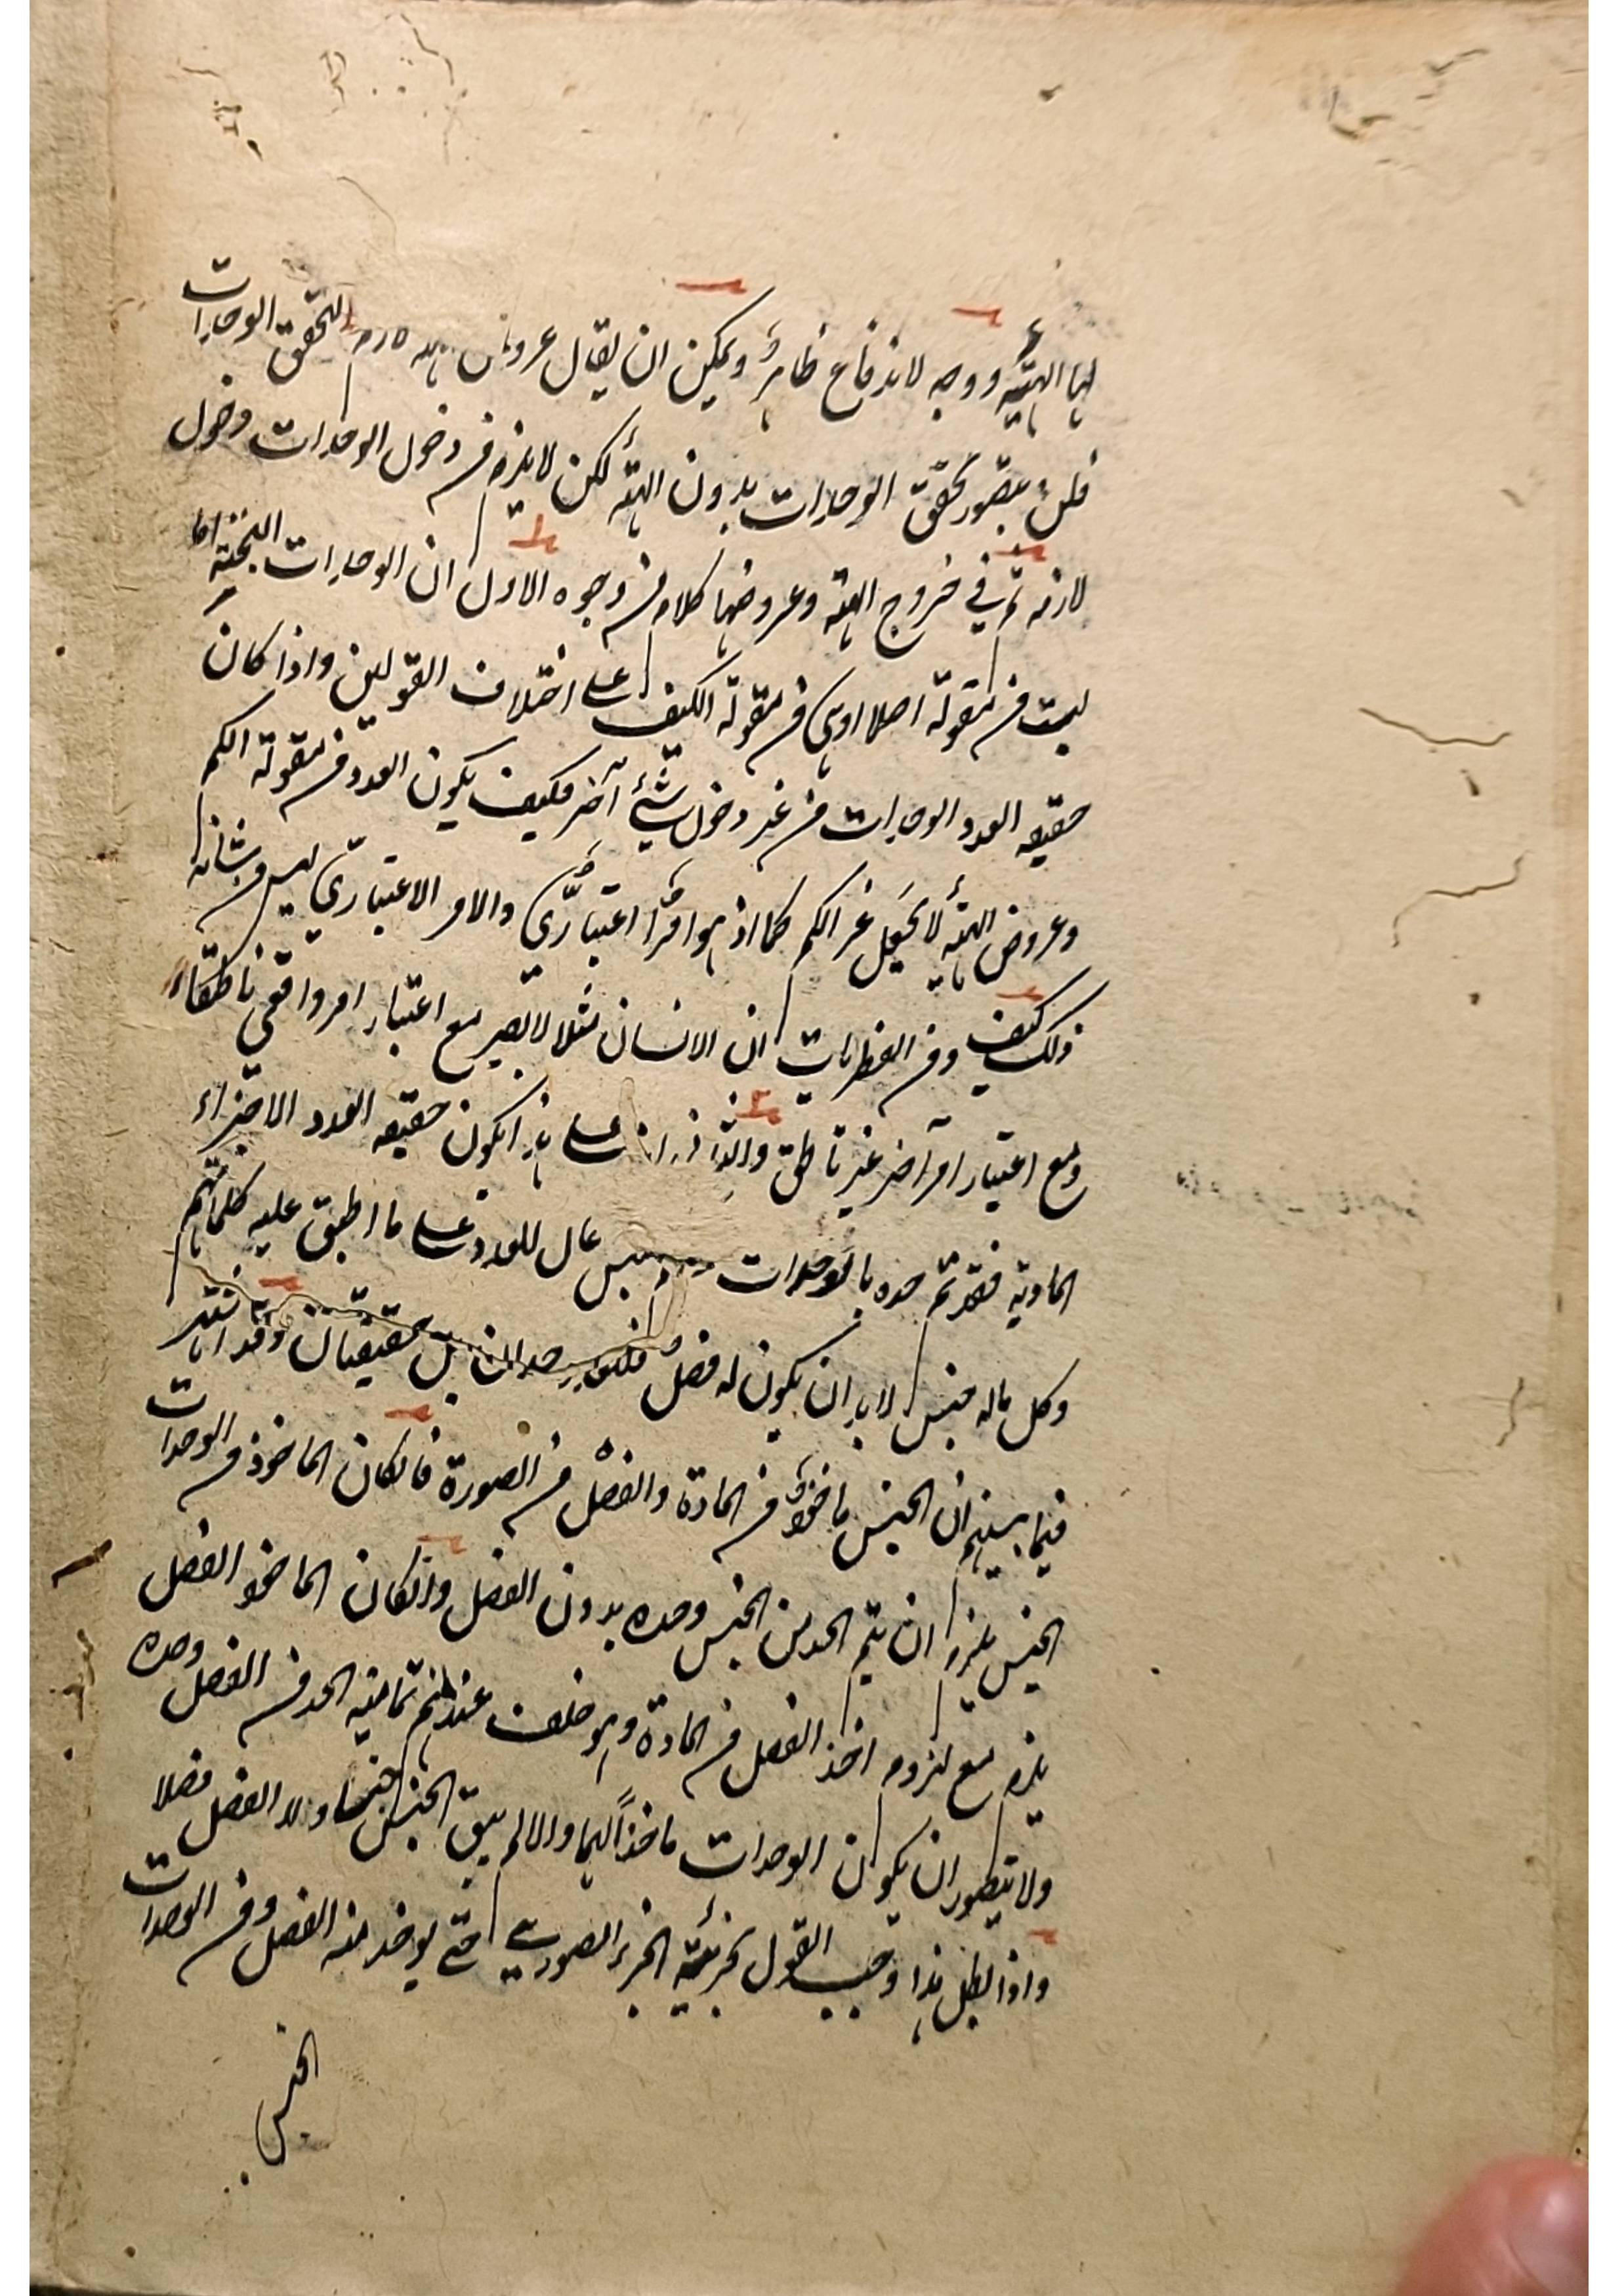 لها الهيئة ووجه لاندفاع ظاهر ويمكن ان يقال عروض لتحقق الوحدات
فلن يتصور تحقق الوحدات بدون الهيئة لكن لا يلزم من دخول الوحدات دخول
لازمه ثم في خروج الهيئة وعروضها كلام من وجوه الاول ان الوحدات البحتة اما
ليست من مقولة اصلا او هي من مقولة الكيف على اختلاف القولين واذا كان
حقيقه العدد الوحدات من غير دخول شيئ آخر فكيف يكون العدد من مقولة الكم
وعروض الهيئة لا يجعل غير الكم كما اذ هو امر اعتباري والامر الاعتباري ليس من شانه
ذلك كيف ومن الفطريات ان الانسان مثلا لا يصير مع اعتبار امر واقعي ناطقا
ومع اعتبار امر آخر غير ناطق والثاني انه على هذا يكون حقيقه العدد الاجزاء
المادية فقد تم حده بالوحدات عال للعدد على ما اطبق عليه كلماتهم
وكل ماله جنس لا بد ان يكون له فصل حدان بل حقيقيان وقد اشتهر
فيما بينهم ان الجنس ماخوذ من المادة والفصل من الصورة فان كان الماخوذ من الوحدات
الجنس يلزم ان يتم الحد من الجنس وحده بدون الفصل وان كان الماخوذ الفصل
يلزم مع لزوم اخذ الفصل من المادة وهو خلف عندهم تمامية الحد من الفصل وحده
ولا يتصور ان يكون الوحدات ماخذا لهما والا لم يبق الجنس جنسا ولا الفصل فصلا
واذا بطل هذا وجب القول بجزئية الجزء الصوري حتى يوخذ منه الفصل ومن الوحدات
الجنس